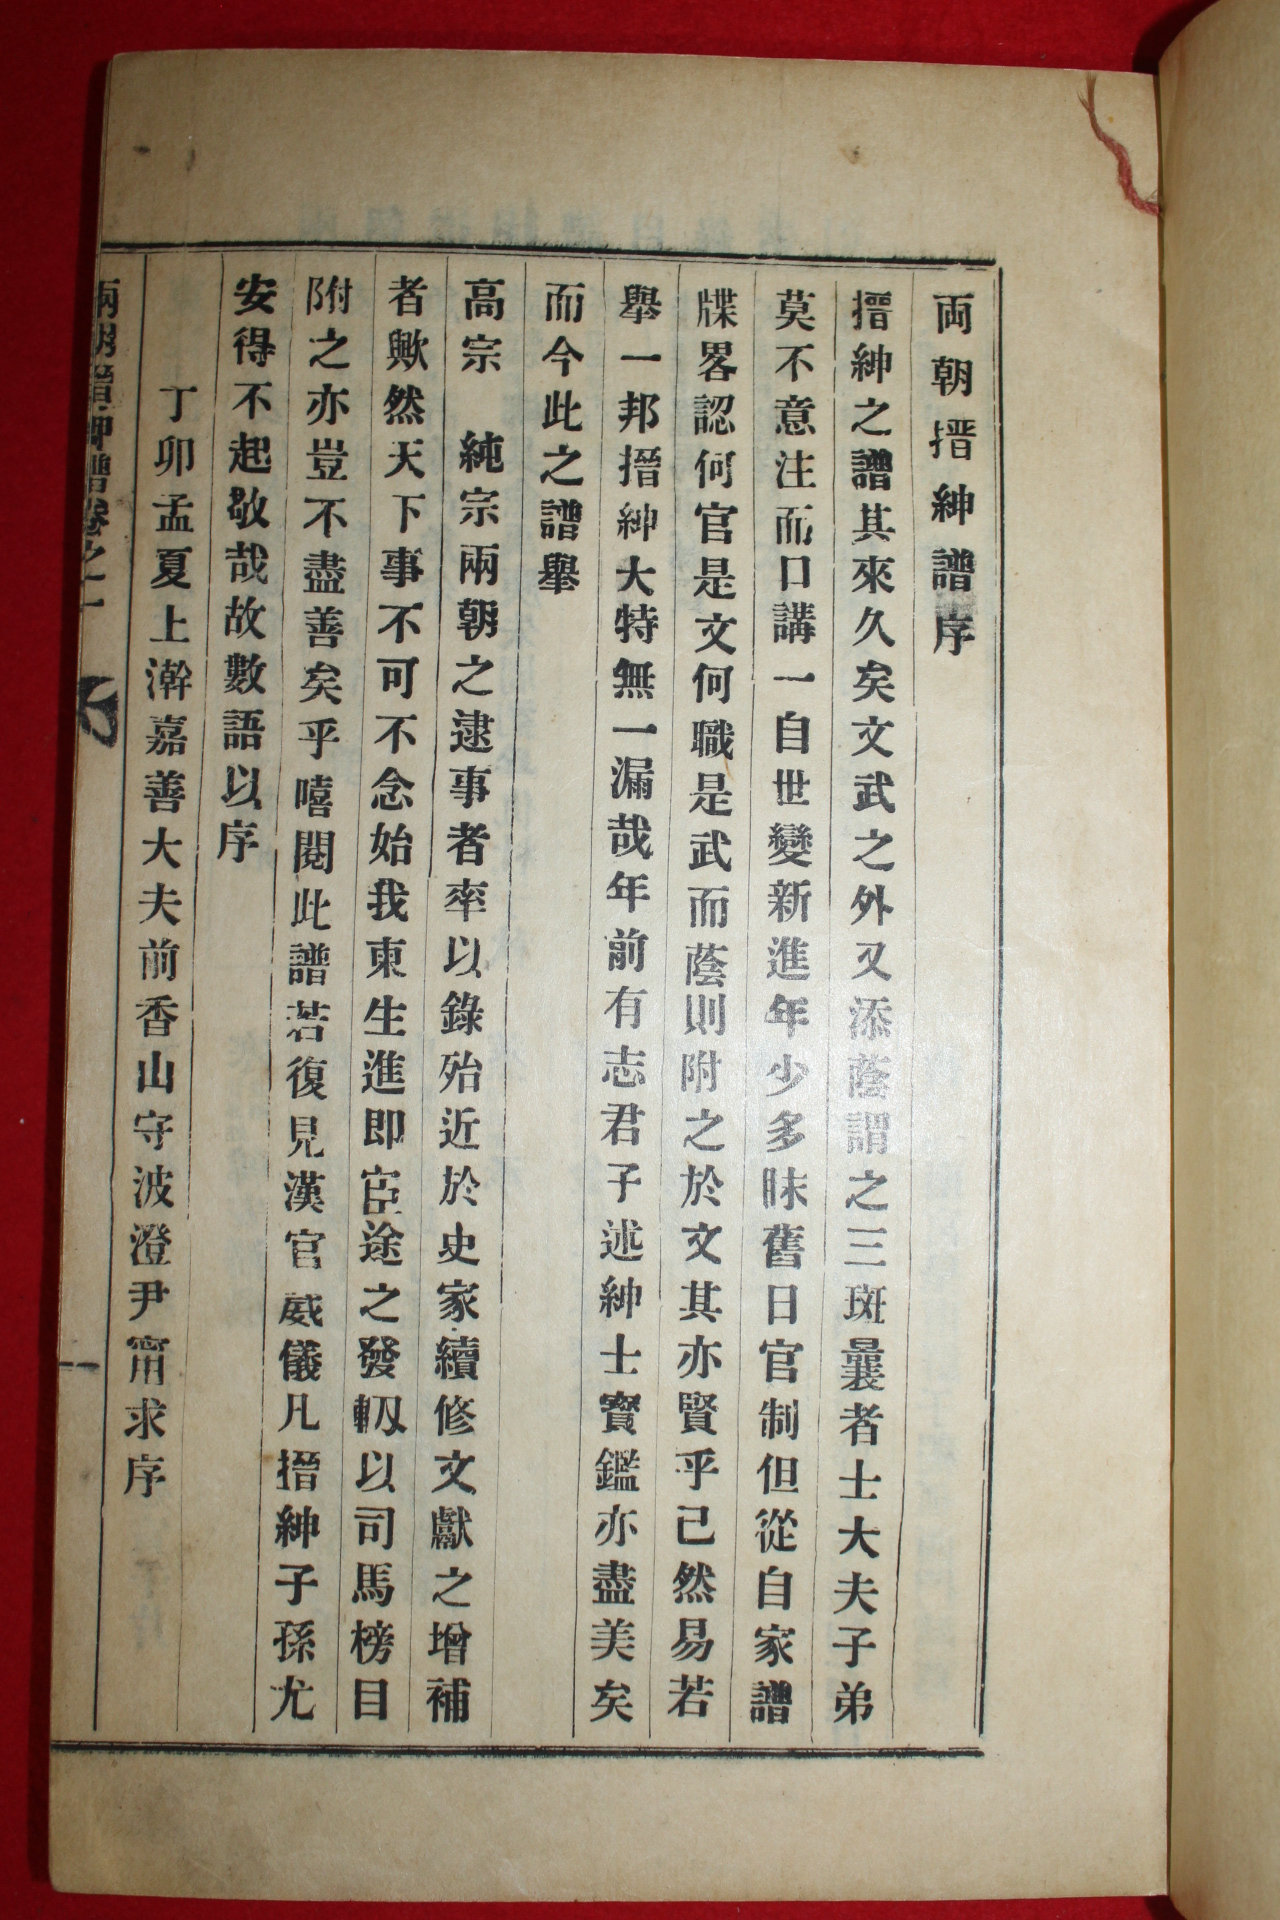 両朝搢紳譜序
搢紳之譜其來久矣文武之外又添蔭謂之三斑曩者士大夫子弟
莫不意注而口講一自世變新進年少多昧舊日官制但從自家譜
牒畧認何官是文何職是武而蔭則附之於文其亦賢乎己然易若
舉一邦搢紳大特無一漏哉年前有志君子述紳士寶鑑亦盡美矣
而今此之譜舉
高宗　純宗兩朝之逮事者率以錄殆近於史家續修文獻之增補
者歟然天下事不可不念始我東生進即宦途之發軔以司馬榜目
附之亦豈不盡善矣乎嘻閱此譜若復見漢官威儀凡搢紳子孫尤
安得不起敬哉故數語以序
丁卯孟夏上澣嘉善大夫前香山守波澄尹甯求序
兩朝搢紳譜卷之一
一